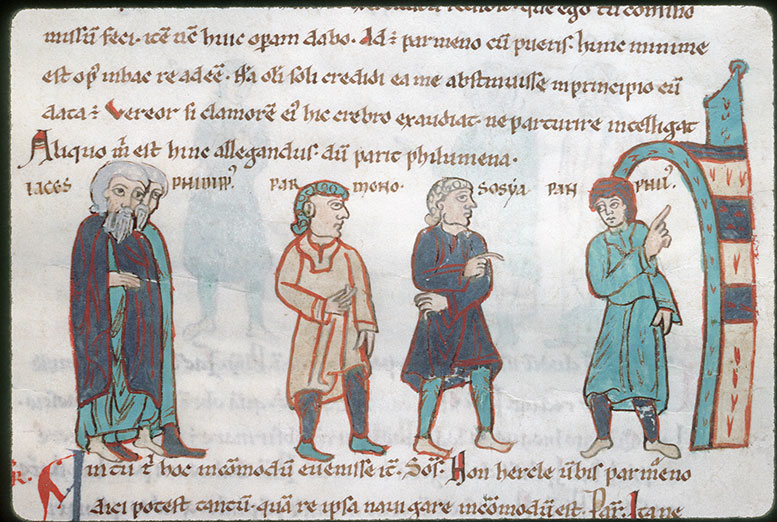 que ego tu consilio
missum feci. hinc operam dabo.
parmeno cum pueris. hunc minime
est op' in hac re adee. soli credidi ea me abstinuisse in principio cum
data. Vereor si clamorē ei' hic crebro exaudiat. ne parturire intelligat
Aliquo m̄ est hinc allegandus. dū parit philumena.
LACES PHIDIPP' PAR MENO. SOSYA PAN PHIL'
hoc incōmodum evenisse itē. Sos. Non hercle verbis parmeno
dici potest tantū. quā re ipsa navigare incōmodū est. Par. Itane